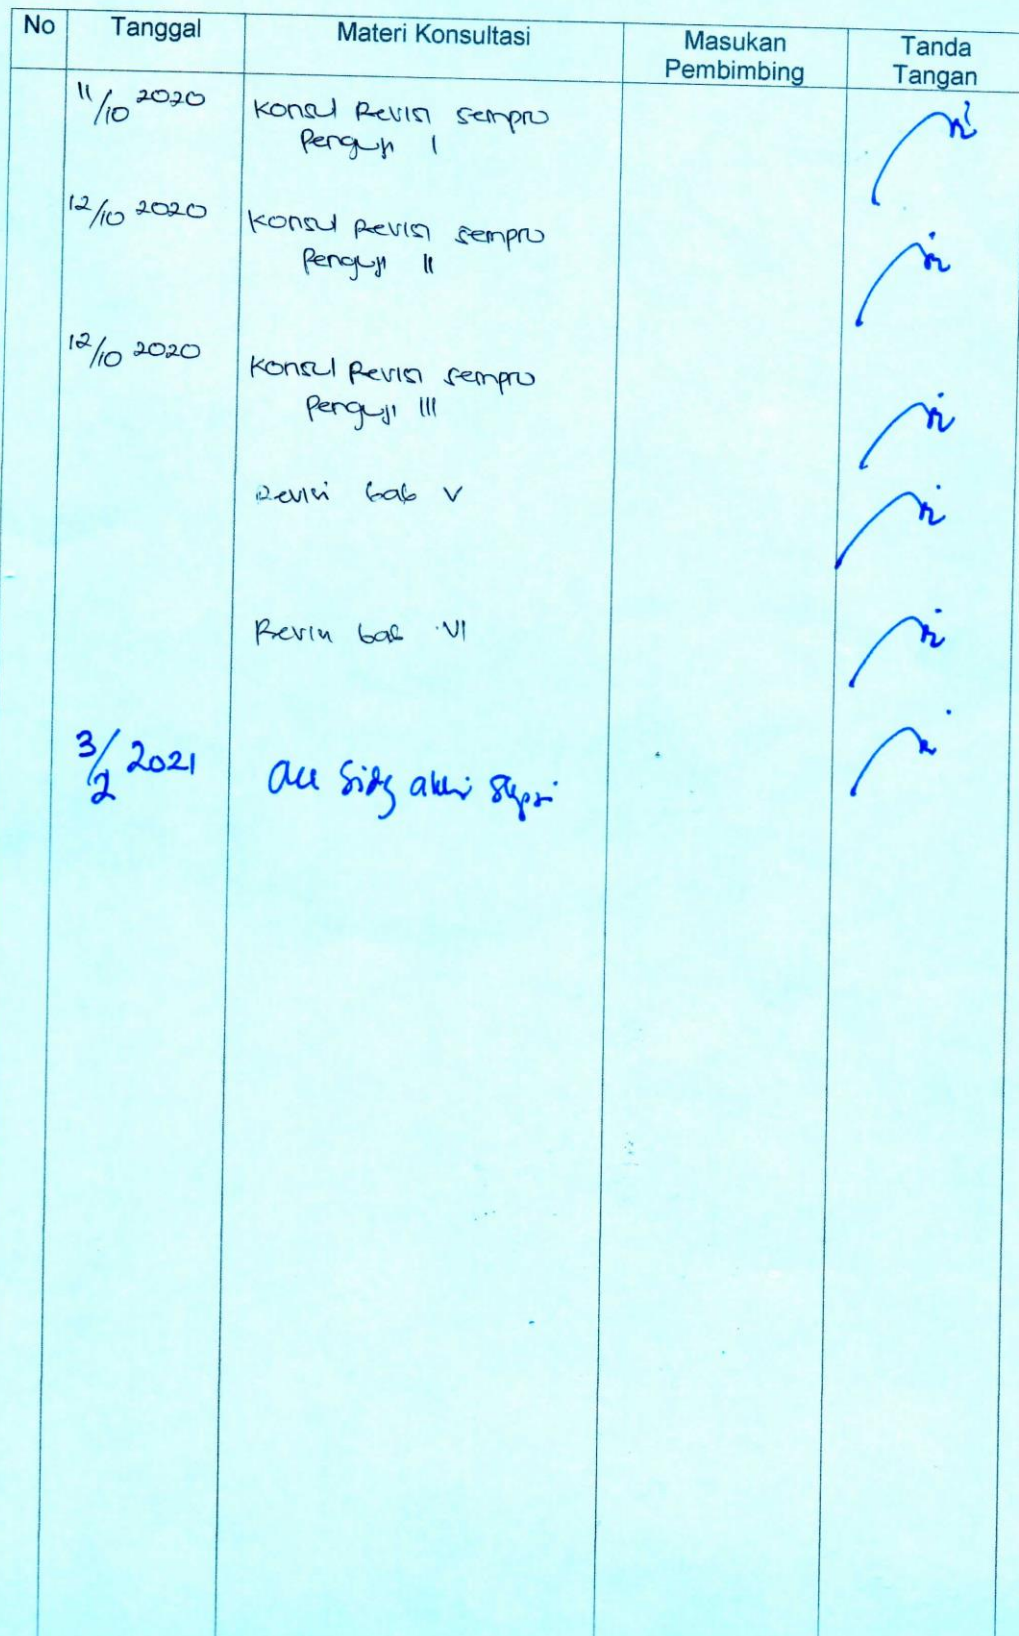 No Tanggal Materi Konsultasi Masukan Pembimbing Tanda Tangan
11/10 2020 Konsul Revisi sempro
Penguji I
12/10 2020 Konsul Revisi sempro
Penguji II
12/10 2020 Konsul Revisi sempro
Penguji III
Revisi bab V
Revisi bab VI
3/2 2021 acc Sidg akhir Skripsi